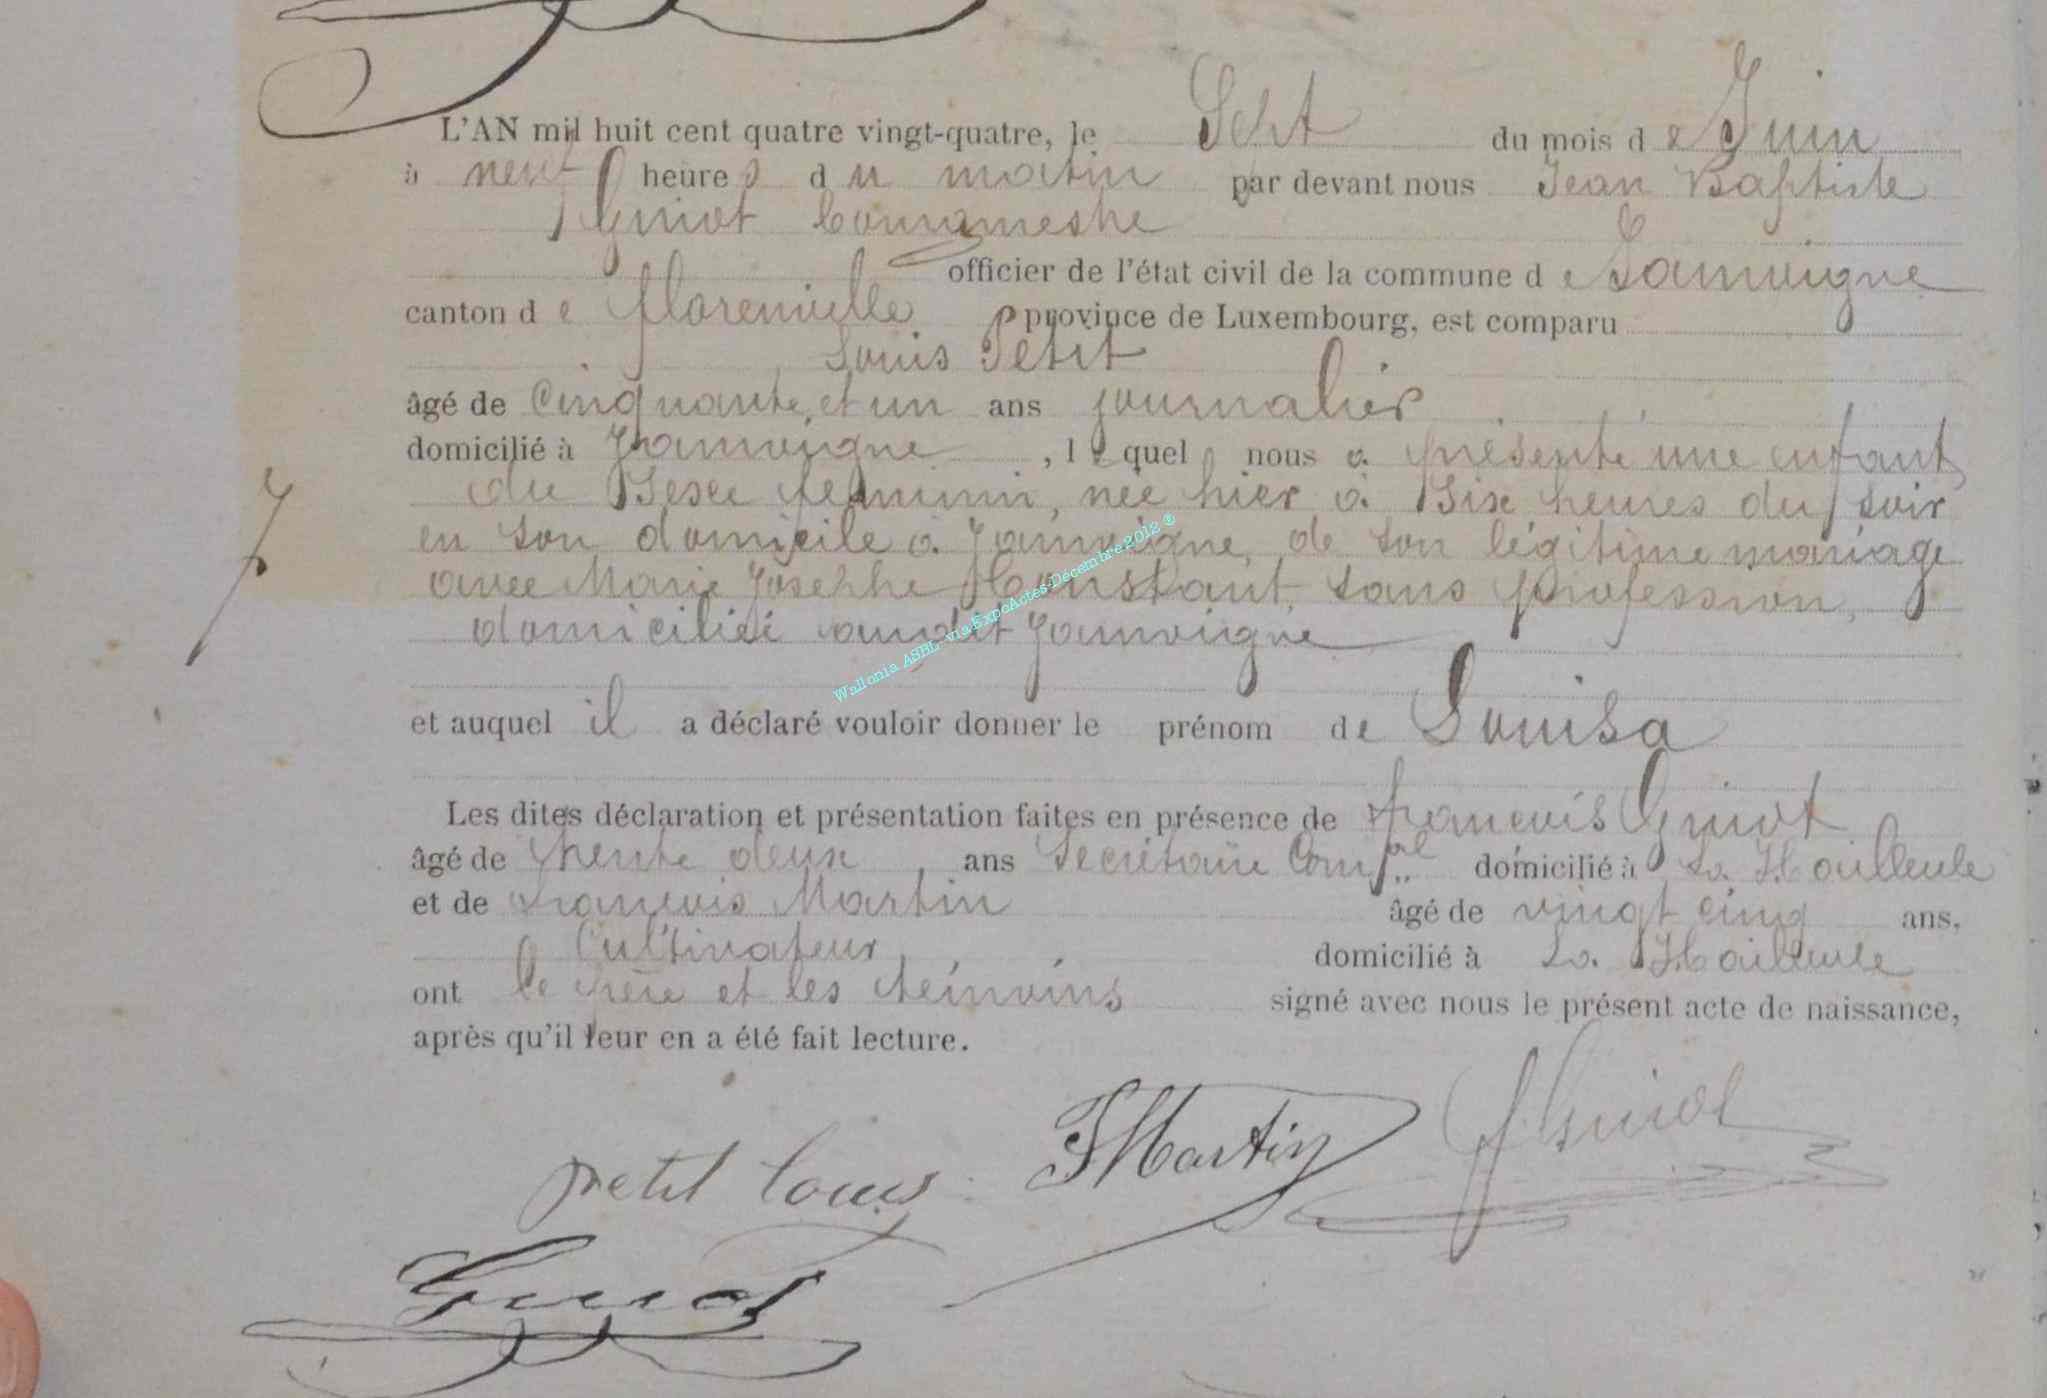 L'AN mil huit cent quatre vingt-quatre, le Sept du mois de Juin
à neuf heures du matin par devant nous Jean Baptiste
Guiot Bourgmestre
officier de l'état civil de la commune de Jamoigne
canton de florenville province de Luxembourg, est comparu
Louis Petit
âgé de Cinquante et un ans journalier
domicilié à Jamoigne, lequel nous a présenté une enfant
du Sexe féminin, née hier à Six heures du soir
en son domicile à Jamoigne, de son légitime mariage
avec Marie Josephe Constant, sans profession,
domicilié audit Jamoigne
7
et auquel il a déclaré vouloir donner le prénom de Louisa
Les dites déclaration et présentation faites en présence de françois Guiot
âgé de trente deux ans Secrétaire Com.al domicilié à La Hailleule
et de françois Martin âgé de vingt cinq ans,
Cultivateur domicilié à La Hailleule
ont le père et les témoins signé avec nous le présent acte de naissance,
après qu'il leur en a été fait lecture.
petit louis FMartin fGuiot
Guiot
Wallonia ASBL - via ExpoActes-Décembre 2012 ®